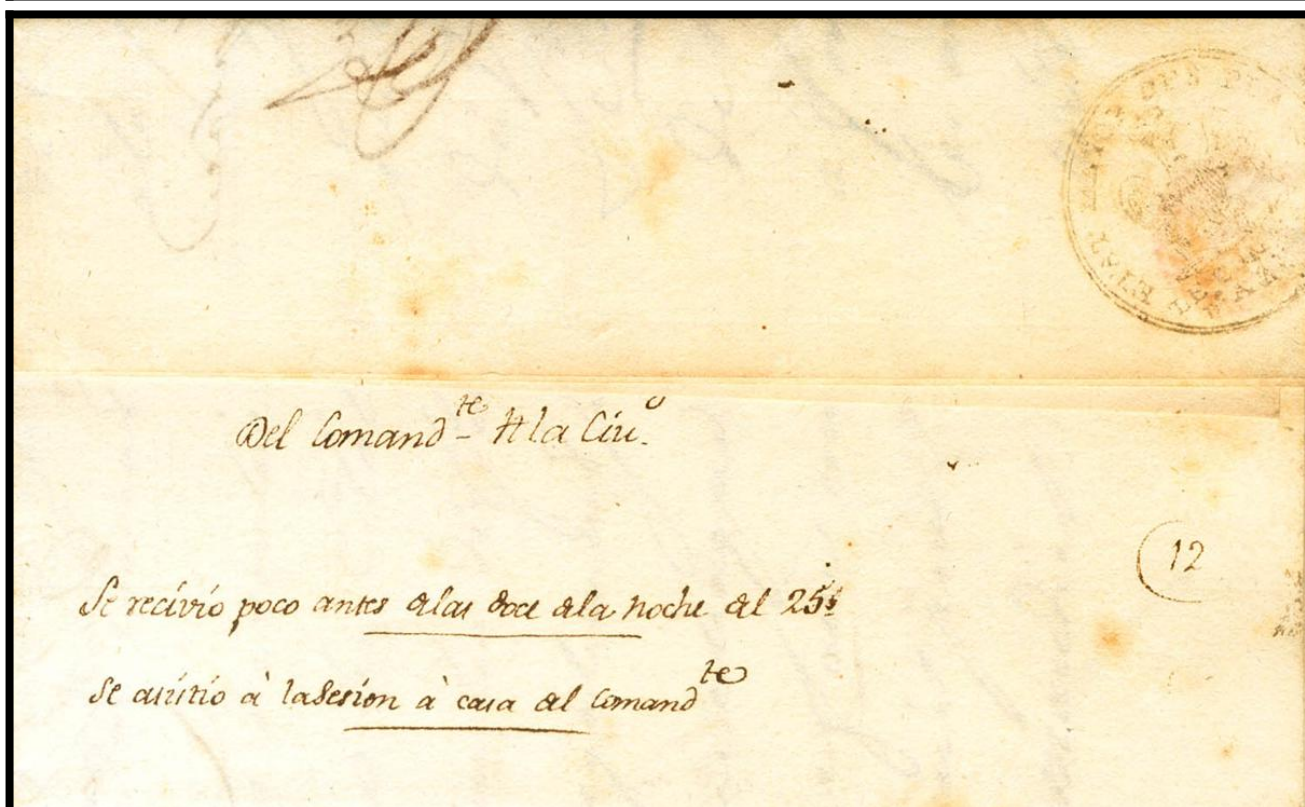 Del Comand.te de la Ciu.d
12
Se recivio poco antes delas doce dela noche del 25
Se asistio à la Sesion à casa del Comandte